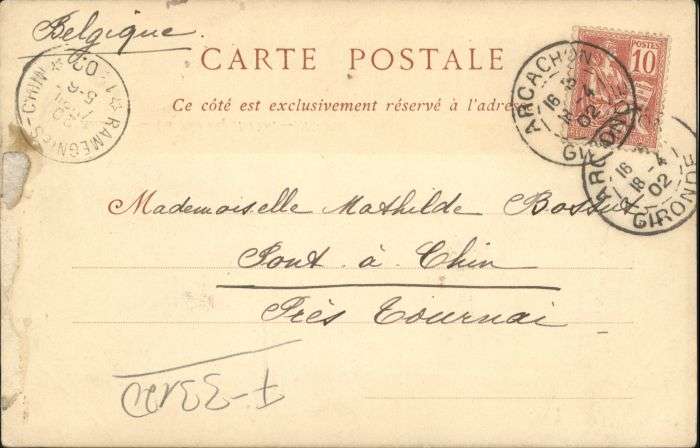 Belgique
CARTE POSTALE
Ce côté est exclusivement réservé à l'adresse
POSTES
10
ARCACHON
16
18 -4
02
GIRONDE
16
18 -4
02
GIRONDE
RAMEGNIES-CHIN
Mademoiselle Mathilde Bossut
Pont à Chin
Près Tournai